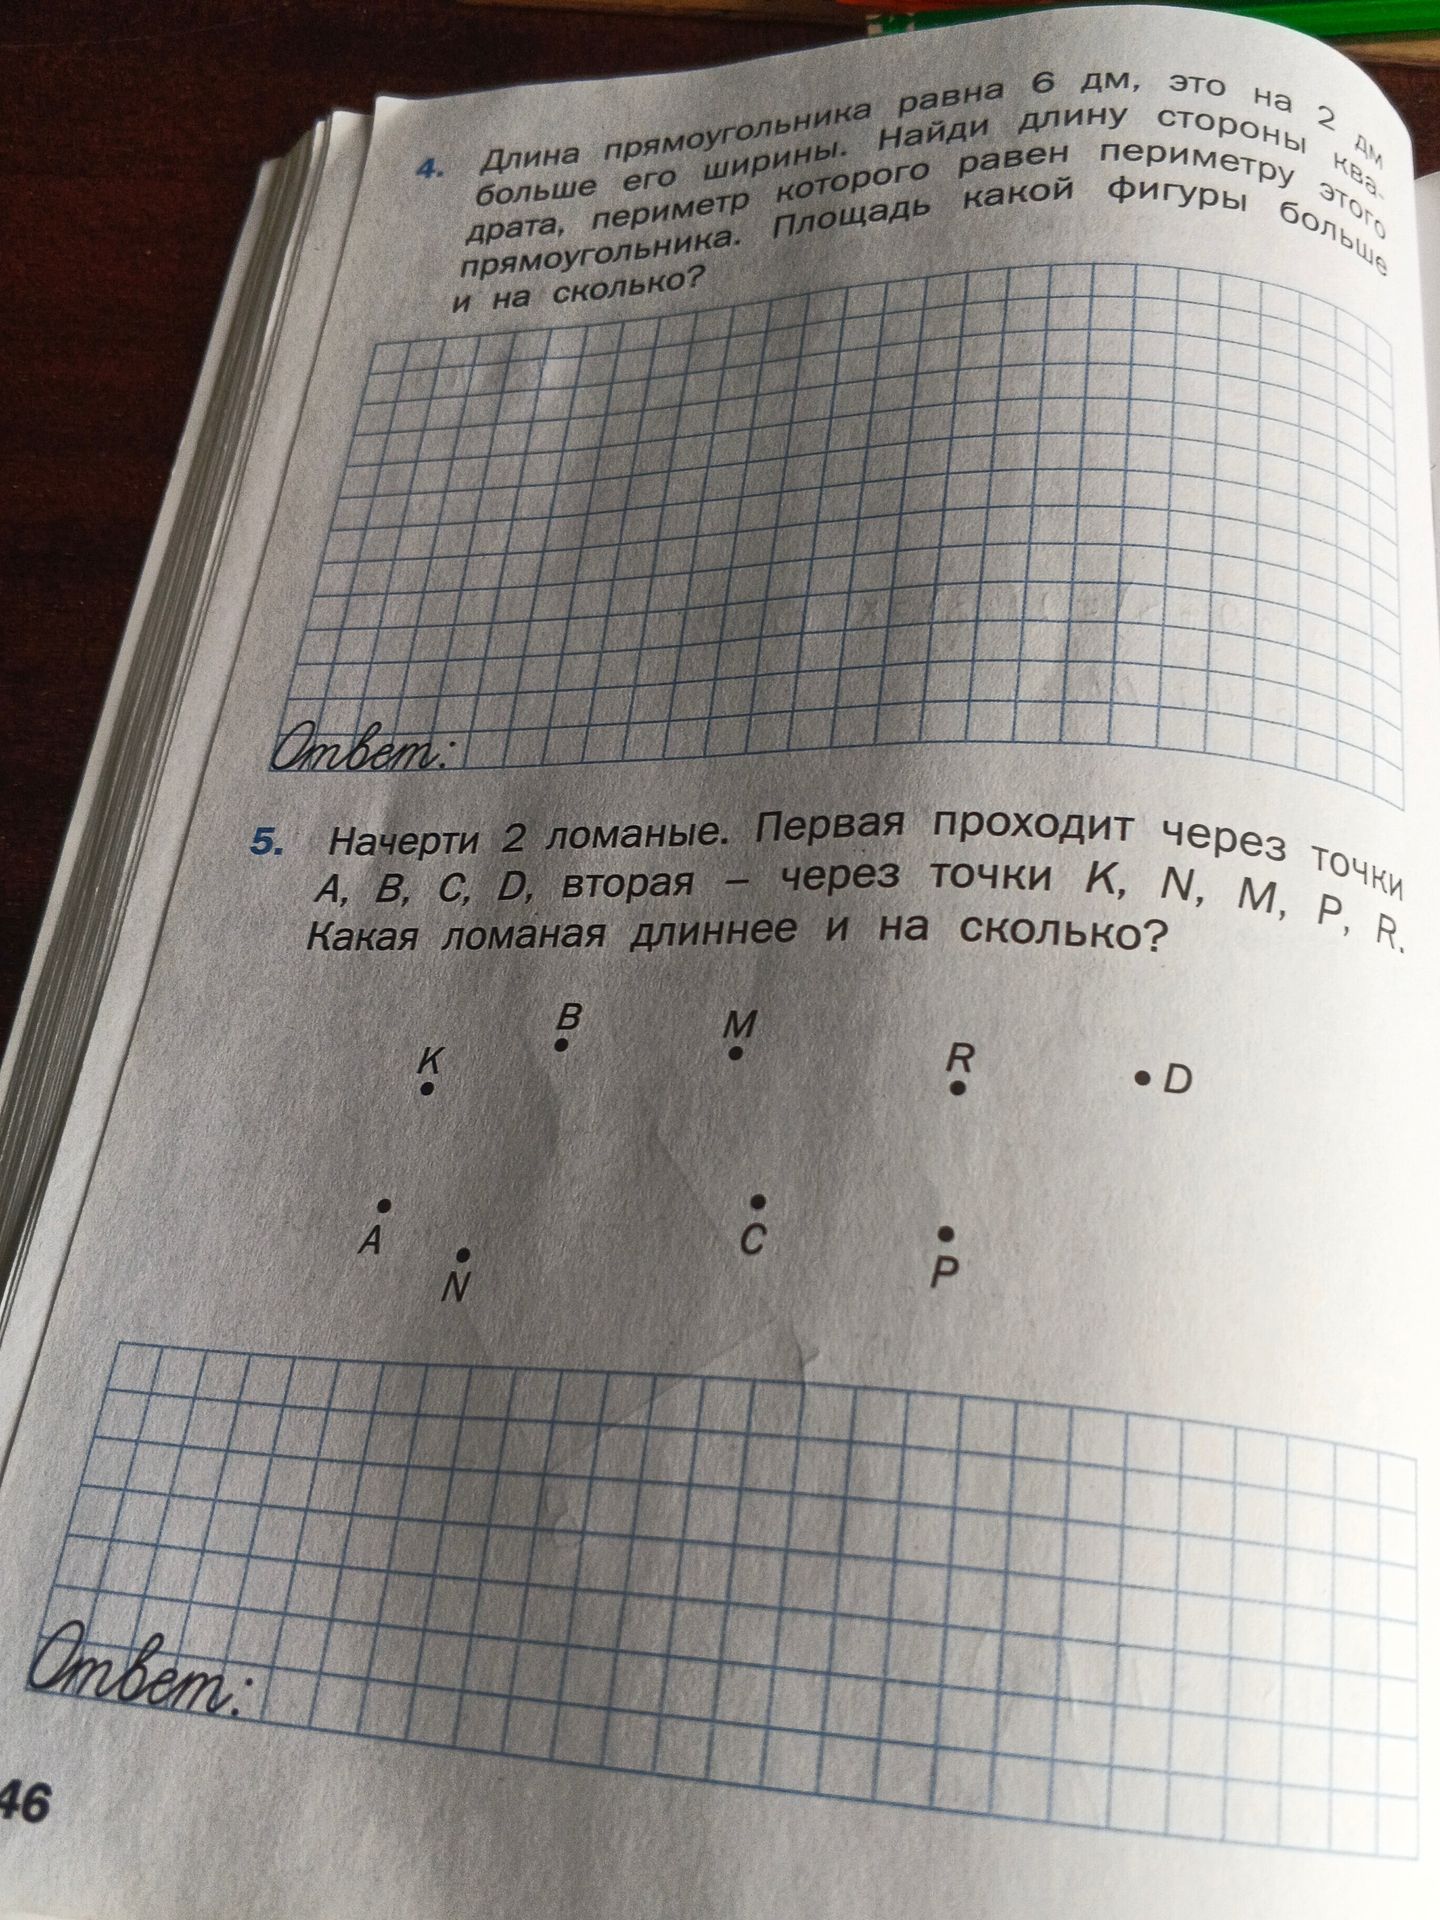 4. Длина прямоугольника равна 6 дм, это на 2 дм
больше его ширины. Найди длину стороны ква-
драта, периметр которого равен периметру этого
прямоугольника. Площадь какой фигуры больше
и на сколько?
Ответ:
5. Начерти 2 ломаные. Первая проходит через точки
A, B, C, D, вторая – через точки K, N, M, P, R.
Какая ломаная длиннее и на сколько?
B
M
K
R
D
A
C
N
P
Ответ:
46